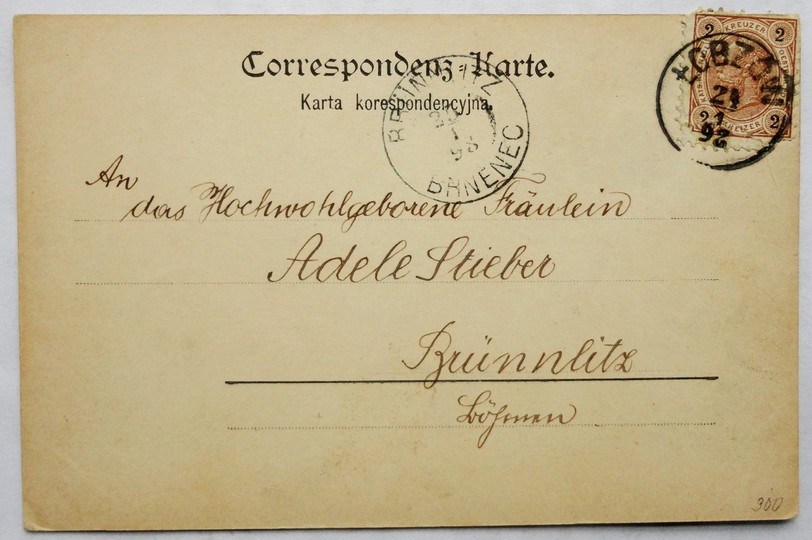 Correspondenz-Karte.
Karta korespondencyjna.
2 KREUZER 2
2 KREUZER 2
ŁOBZÓW
24
1
98
BRÜNNLITZ
1
98
BRNĚNEC
An
das Hochwohlgeborene Fräulein
Adele Stieber
Brünnlitz
Böhmen
300